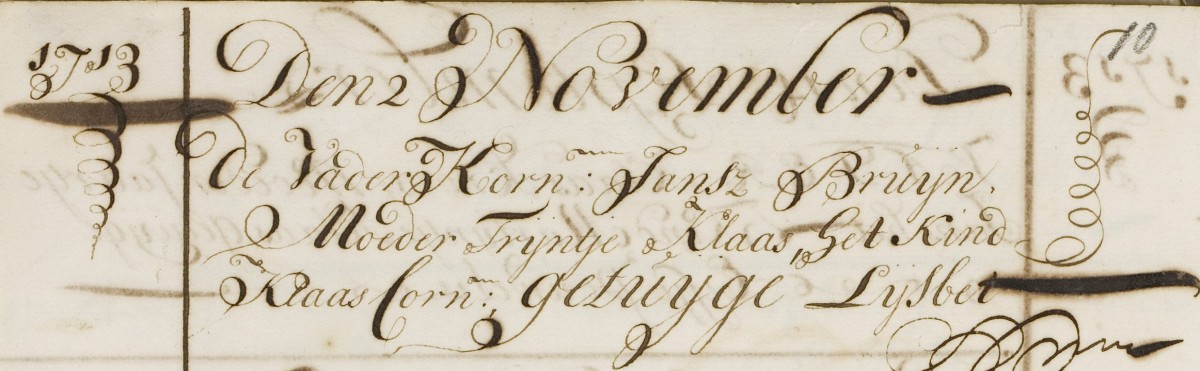 1713
Den 2 November
10
de Vader Korn: Jansz Bruÿn,
Moeder Trÿntje Klaas, het Kind
Klaas Corn:, getuÿge Lÿsbet